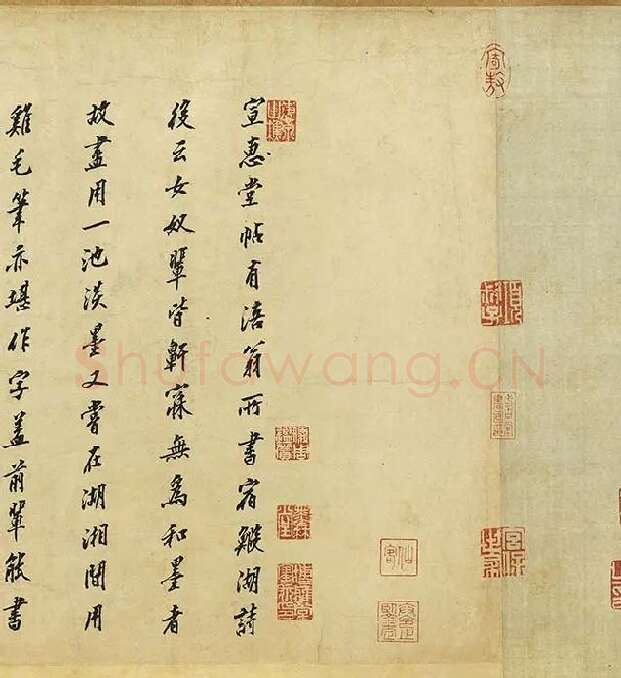 宣惠堂帖有涪翁所書宿湖詩
後云女奴輩皆軒寐無為和墨者
故盡用一池淡墨又嘗在湖湘間用
雞毛筆亦堪作字蓋前輩能書
Shufawang.CN